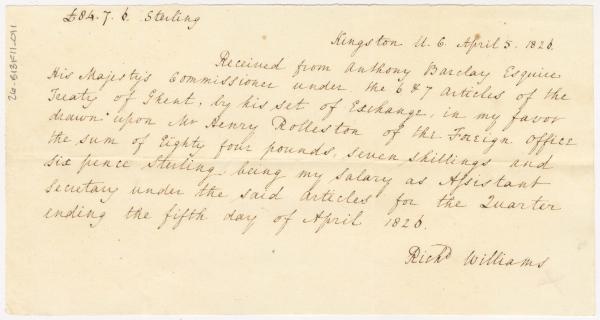 £84.7.6 Sterling
Kingston U.C. April 5. 1826.
Received from Anthony Barclay Esquire
His Majesty's Commissioner under the 6 & 7 articles of the
Treaty of Ghent, by his set of Exchange, in my favor
drawn upon Mr Henry Rolleston of the Foreign Office
the sum of Eighty four pounds, seven shillings and
six pence Sterling, being my salary as Assistant
Secretary under the said articles for the Quarter
ending the fifth day of April 1826.
Richd Williams